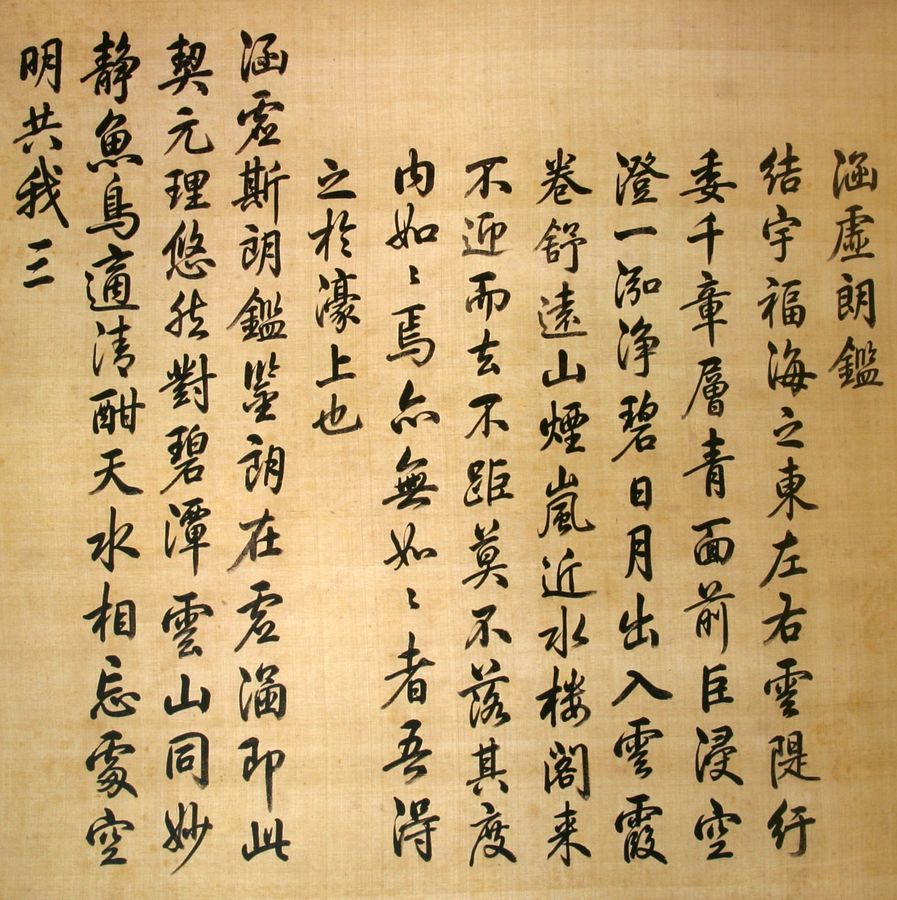 涵虛朗鑑
結宇福海之東左右雲隄行
委千章層青面前巨浸空
澄一泓浄碧日月出入雲霞
卷舒遠山煙嵐近水樓閣来
不迎而去不距莫不落其度
内如〻焉亦無如〻者吾得
之於濠上也
涵虛斯朗鑑鑒朗在虛涵即此
契元理悠然對碧潭雲山同妙
静魚鳥適清酣天水相忘處空
明共我三